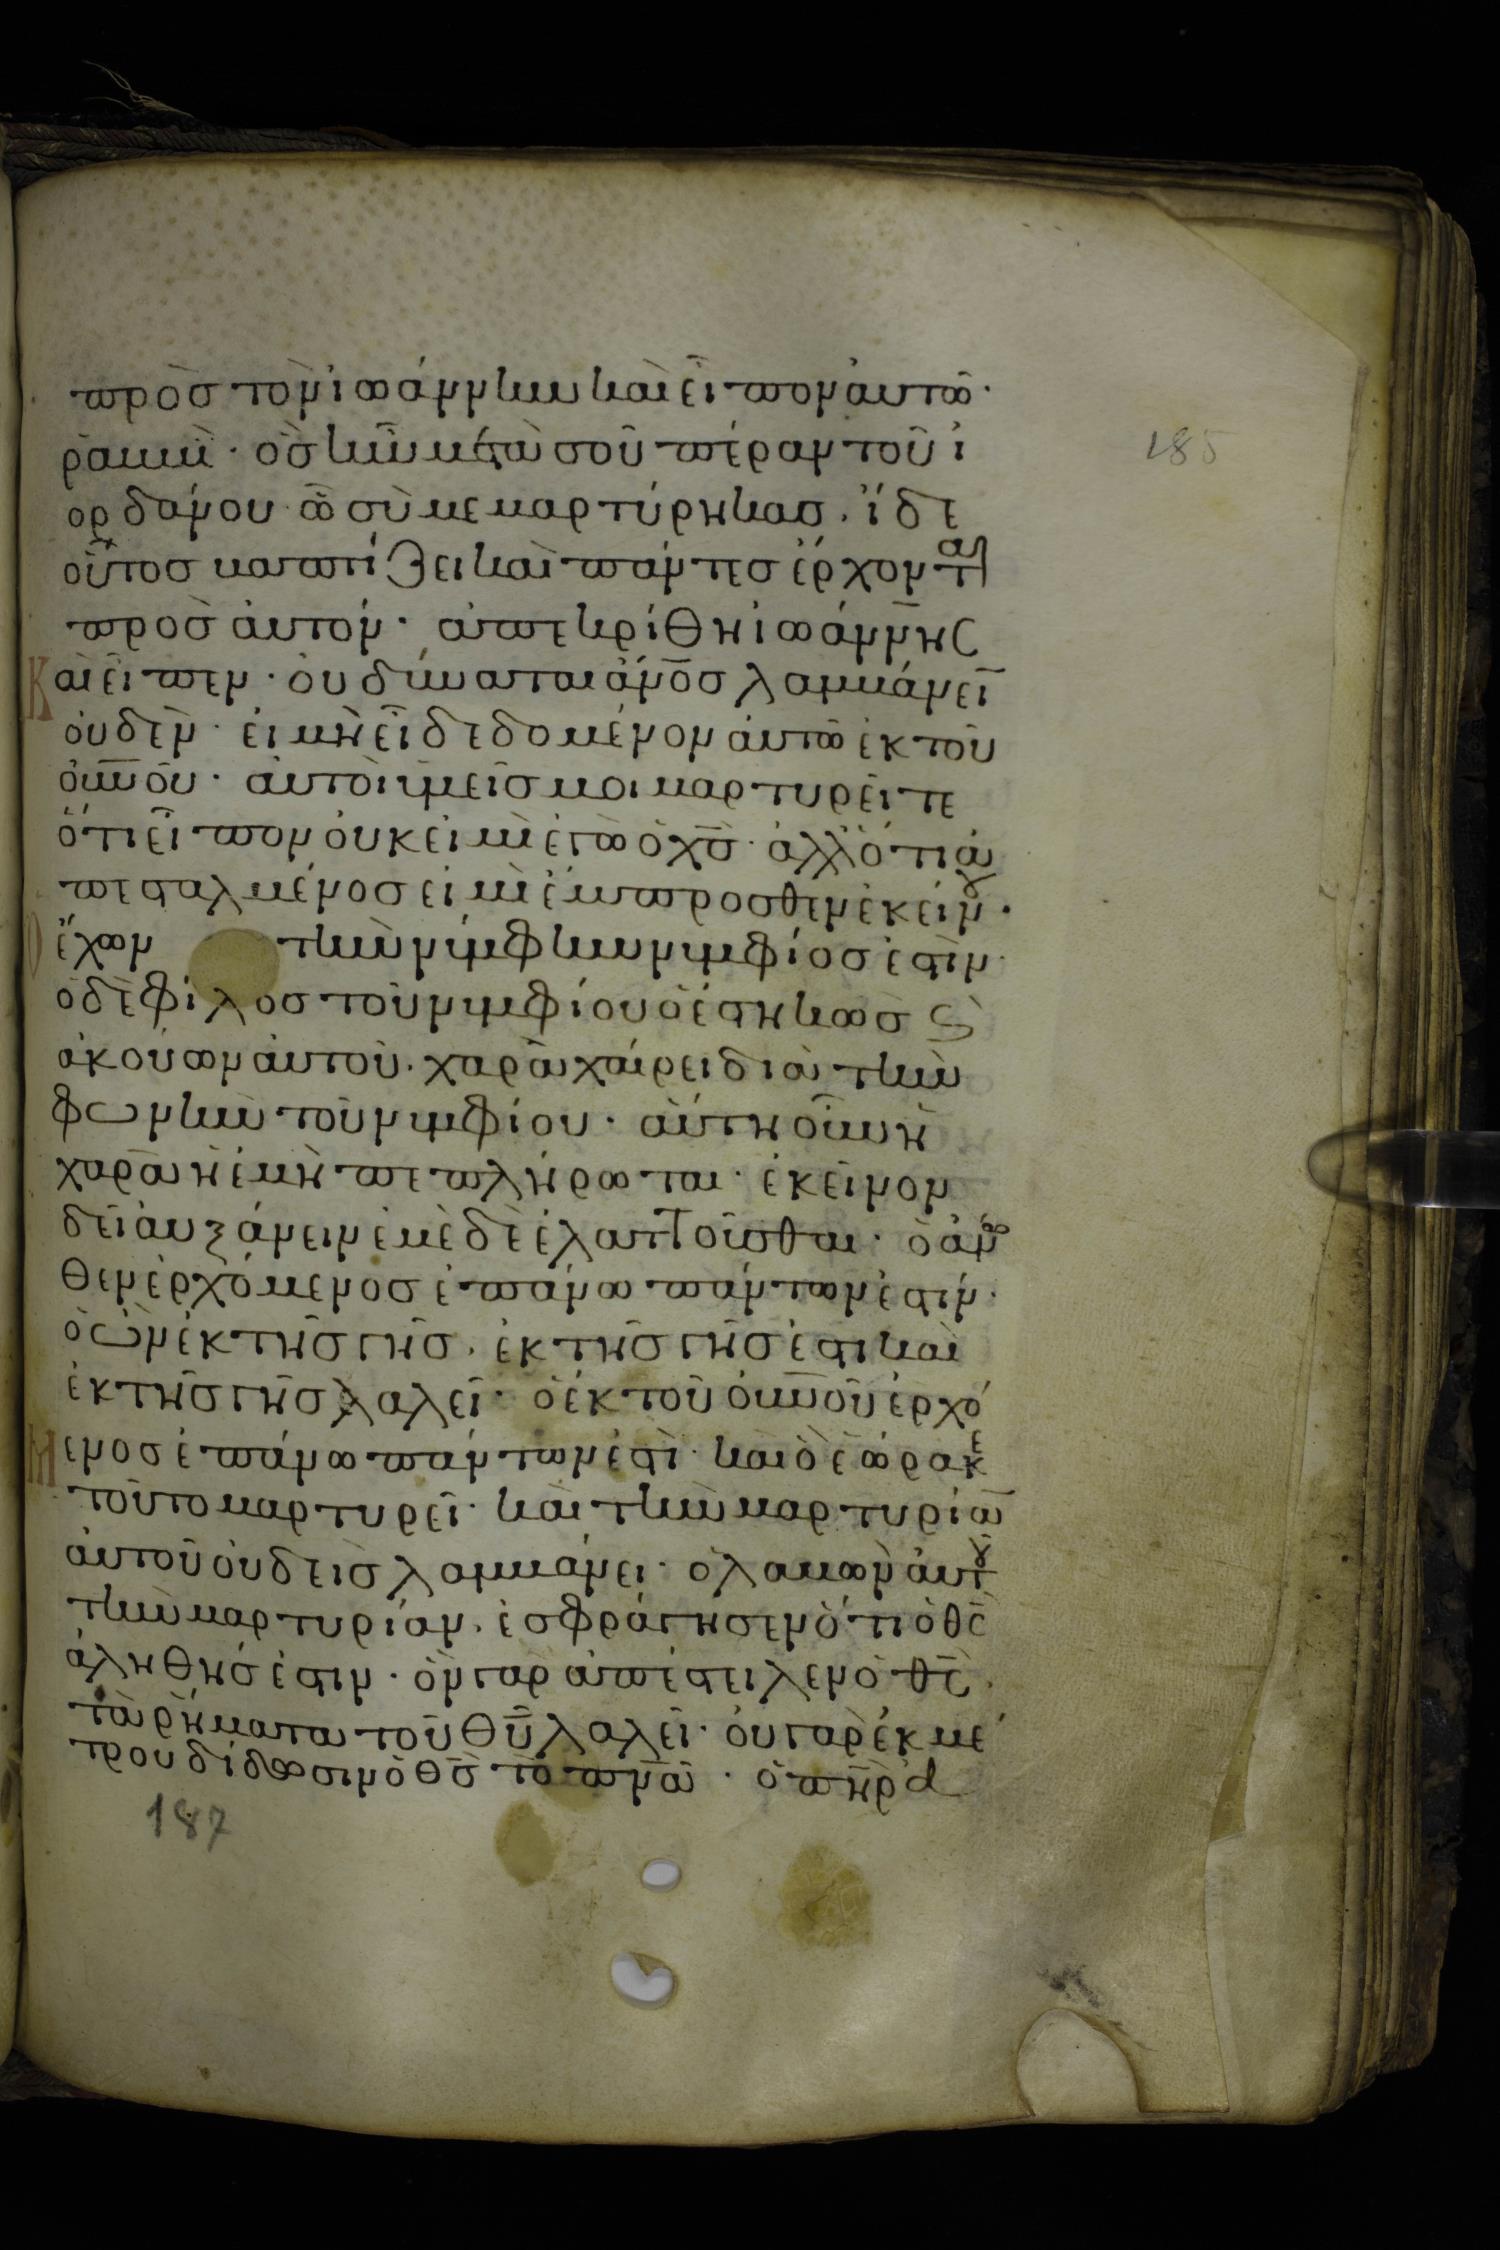 πρὸσ τὸν ἰωάννην καὶ εἶπον ἀυτῶ·
185
ραββὶ· ὃσ ἦν μετὰ σοῦ πέραν τοῦ ἰ
ορδάνου ὧ σὺ μεμαρτύρηκασ. ἴδε
οὗτοσ βαπτίζει καὶ πάντεσ ἔρχονται
πρὸσ ἀυτόν· ἀπεκρίθη ἰωάννησ
Καὶ εἶπεν· ὀυ δύναται ἄν̅ο̅σ̅ λαμβάνει̅
ὀυδὲν· ἐι μὴ εἶ δεδομένον ἀυτῶ ἐκ τοῦ
ὀυ̅ν̅οῦ· ἀυτοὶ ὑμεῖσ μοι μαρτυρεῖτε
ὅτι εἶπον ὀυκ εἰμὶ ἐγὼ ὁ χ̅σ̅· ἀλλ' ὅτι ἀ
πεσταλμένοσ εἰμὶ ἔμπροσθεν ἐκείνου·
Ὁ ἔχων τὴν νύμφην νυμφίοσ ἐστὶν·
ὁ δὲ φίλοσ τοῦ νυμφίου ὁ ἑστηκὼσ ϗ
ἀκούων ἀυτοῦ· χαρᾶ χαίρει διὰ τὴν
φωνὴν τοῦ νυμφίου· ἁύτη οὖν ἡ
χαρὰ ἡ ἐμὴ πεπλήρωται· ἐκεῖνον
δεῖ ἀυξάνειν ἐμὲ δὲ ἐλαττοῦσθαι· ὁ ἄνω
θεν ἐρχόμενοσ ἐπάνω πάντων ἐστίν·
ὁ ὢν ἐκ τῆσ γῆσ· ἐκ τῆσ γῆσ ἐστι καὶ
ἐκ τῆσ γῆσ λαλεῖ· ὁ ἐκ τοῦ ὀυ̅ν̅οῦ ἐρχό
Μενοσ ἐπάνω πάντων ἐστὶ· καὶ ὃ ἑώρακε
τοῦτο μαρτυρεῖ· καὶ τὴν μαρτυρία̅
ἀυτοῦ ὀυδεὶσ λαμβάνει· ὁ λαβὼν ἀυτοῦ
τὴν μαρτυρίαν· ἐσφράγησεν ὅτι ὁ θ̅ς̅
ἀληθήσ ἐστιν· ὃν γὰρ ἀπέστειλεν ὁ θ̅ς̅·
τὰ ρήματα τοῦ θ̅υ̅ λαλεῖ· ὀυ γὰρ ἐκ μέ
τρου δίδωσιν ὁ θ̅σ̅ τὸ π̅ν̅α̅· ὁ π̅η̅ρ̅ ἀ
187